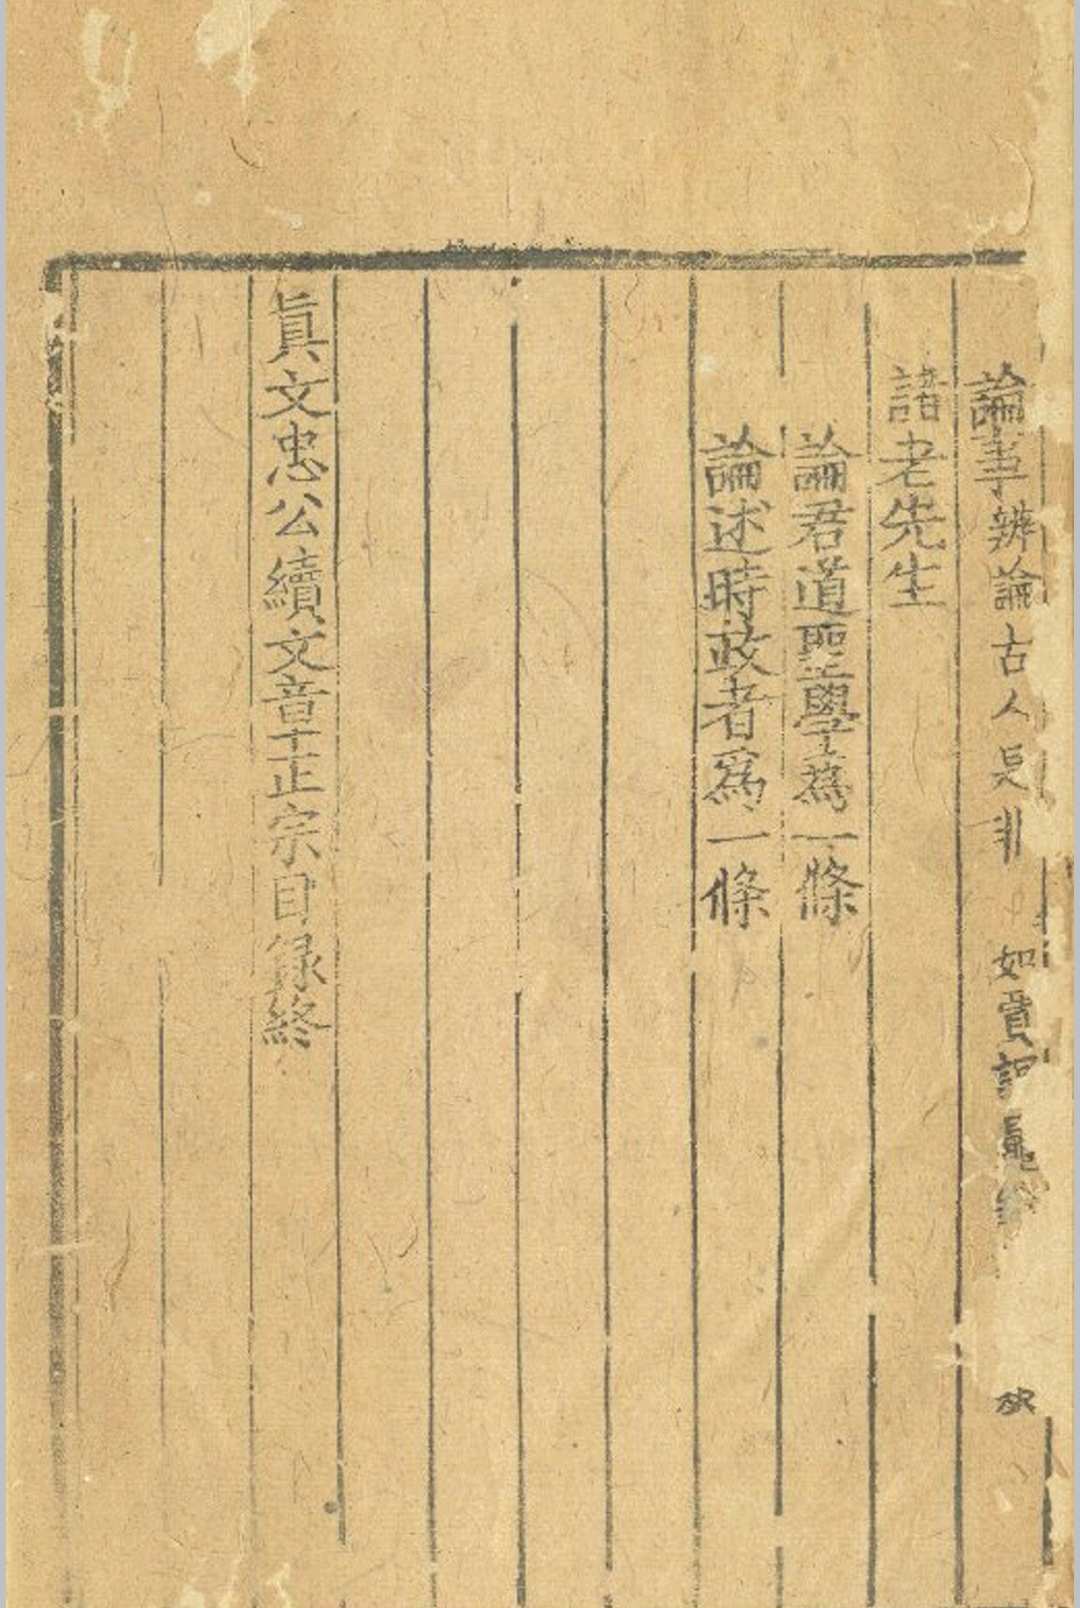 論事辨論古人是非 如賈
諸老先生
論君道聖學為一條
論述時政者爲一條
眞文忠公續文章正宗目録終